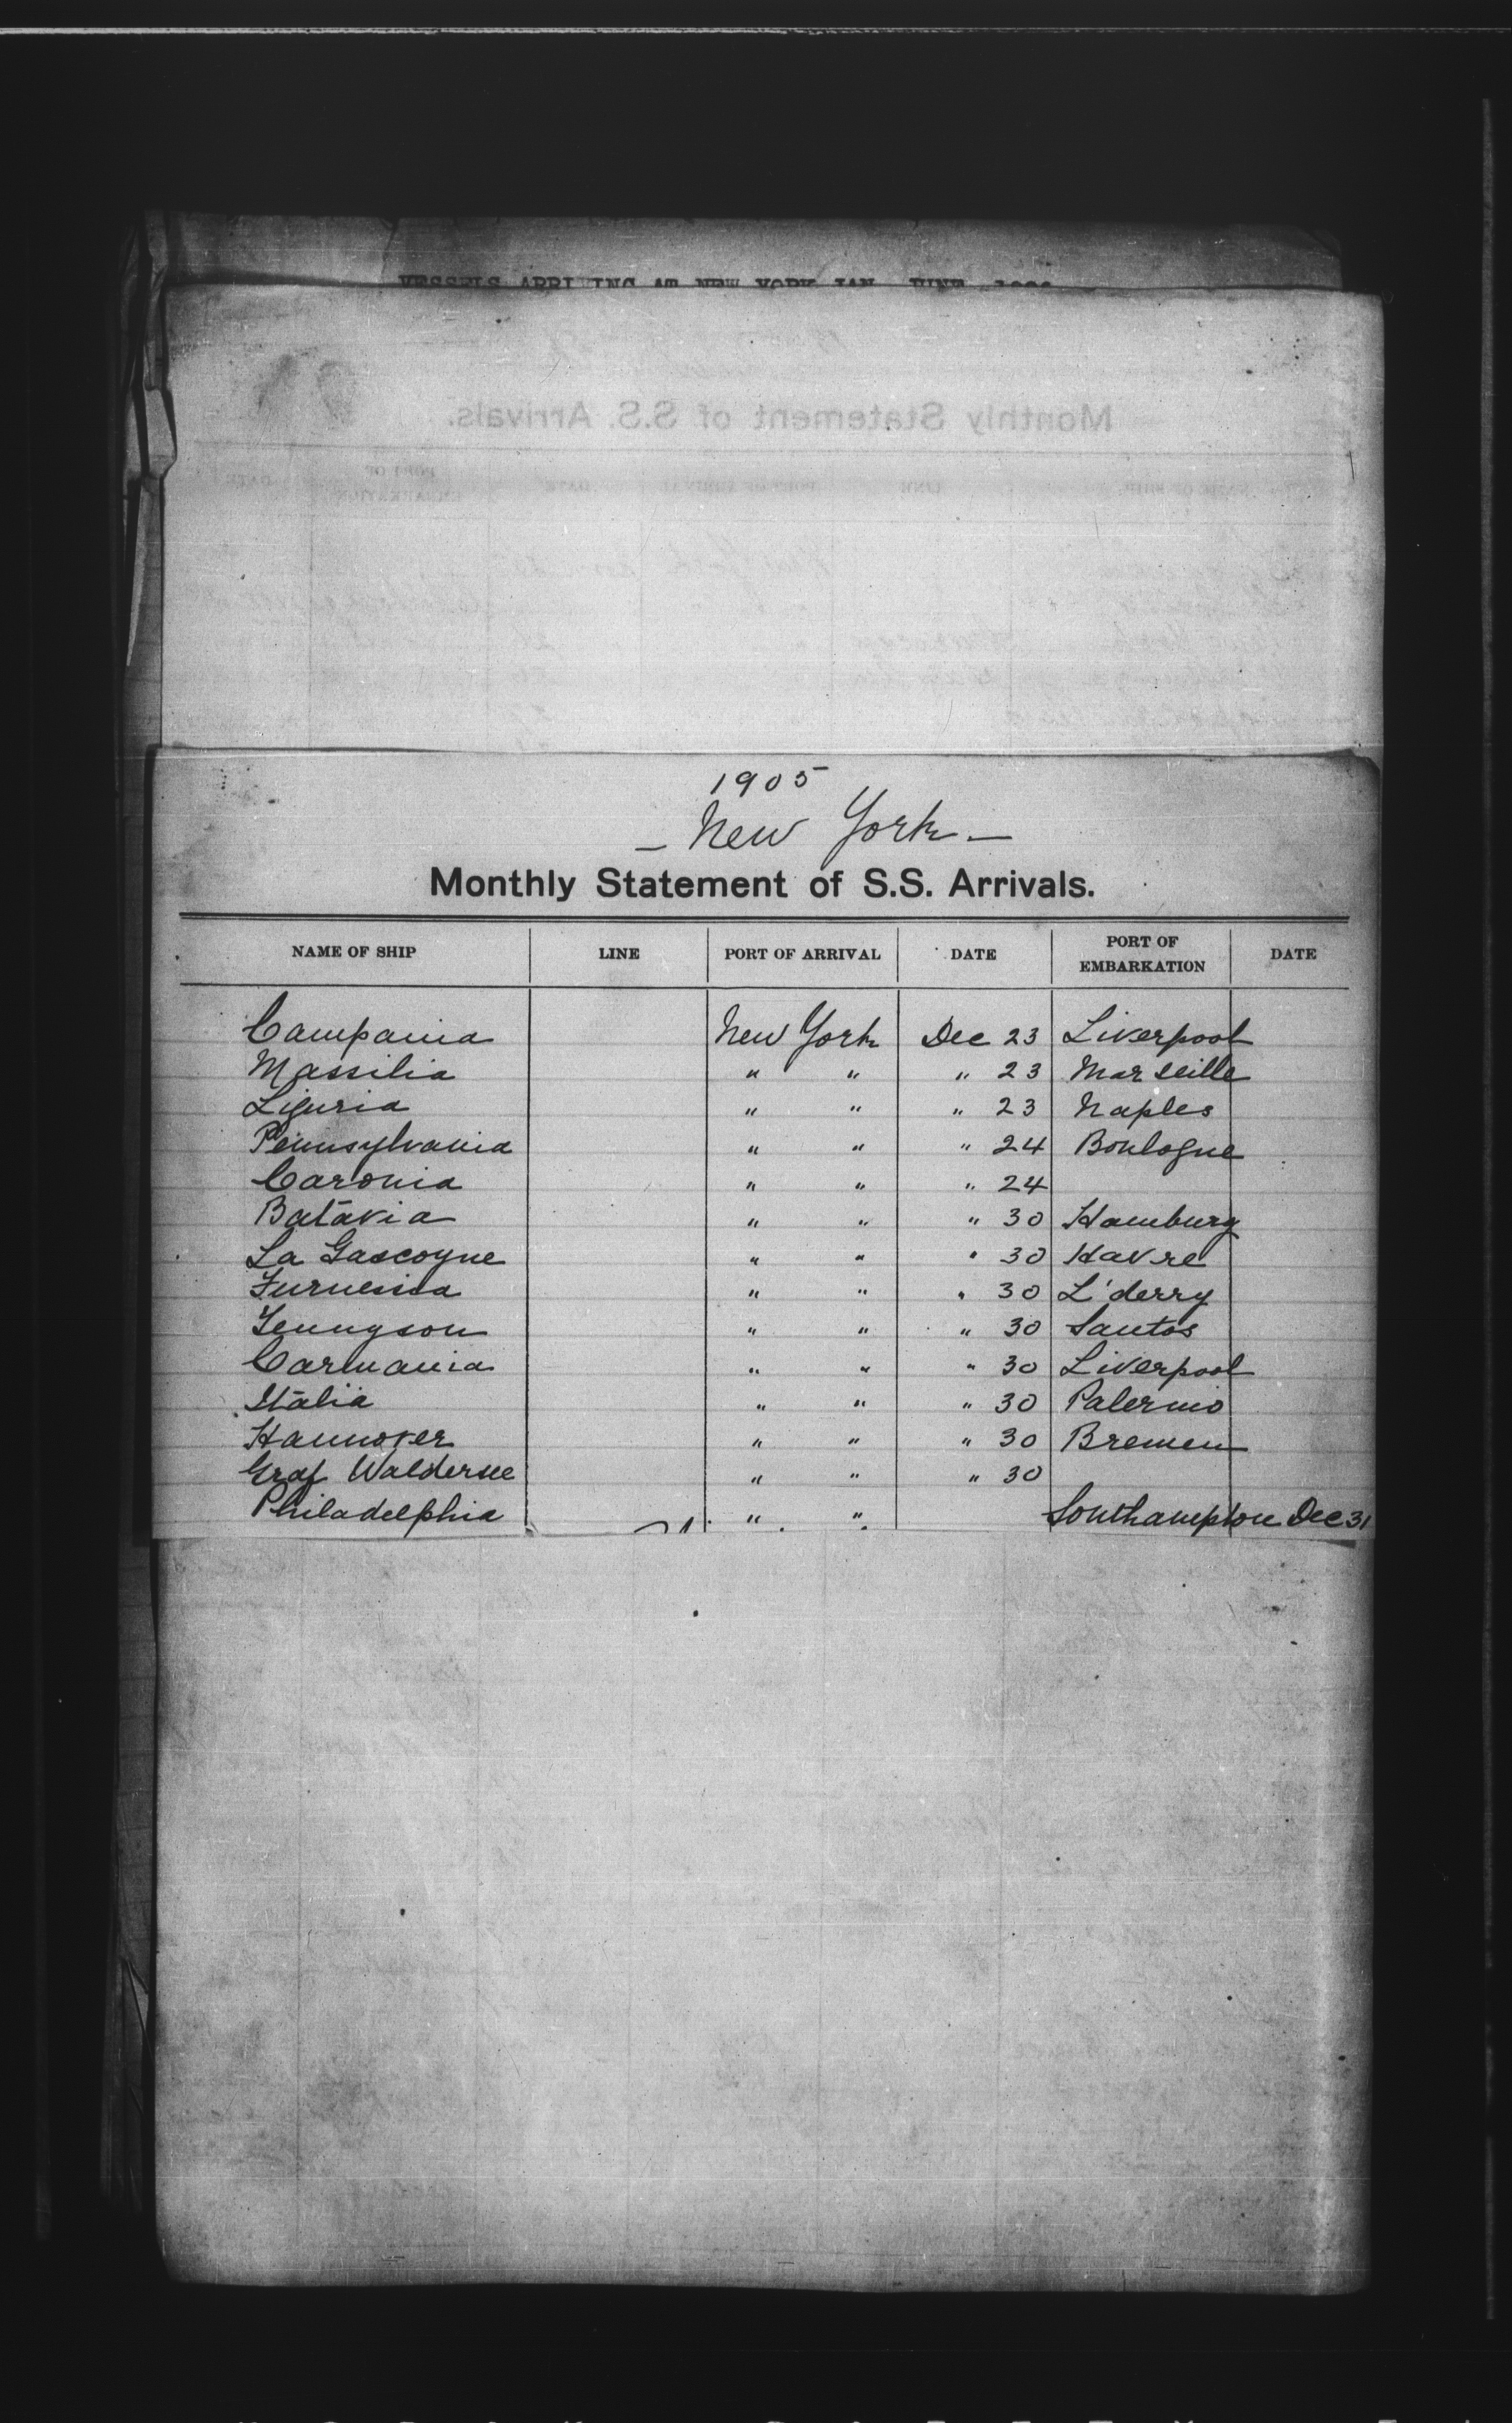 VESSELS ARRIVING AT NEW YORK JAN. JUNE,
Monthly Statement of S.S. Arrivals.
1905
— New York —
Monthly Statement of S.S. Arrivals.
NAME OF SHIP LINE PORT OF ARRIVAL DATE PORT OF EMBARKATION DATE
Campania New York Dec 23 Liverpool
Massilia " " " 23 Marseille
Liguria " " " 23 Naples
Pennsylvania " " " 24 Boulogne
Caronia " " " 24
Batavia " " " 30 Hamburg
La Gascoyne " " " 30 Havre
Furnessia " " " 30 L'derry
Tennyson " " " 30 Santos
Carmania " " " 30 Liverpool
Italia " " " 30 Palermo
Hannover " " " 30 Bremen
Graf Waldersee " " " 30
Philadelphia " " Southampton Dec 31